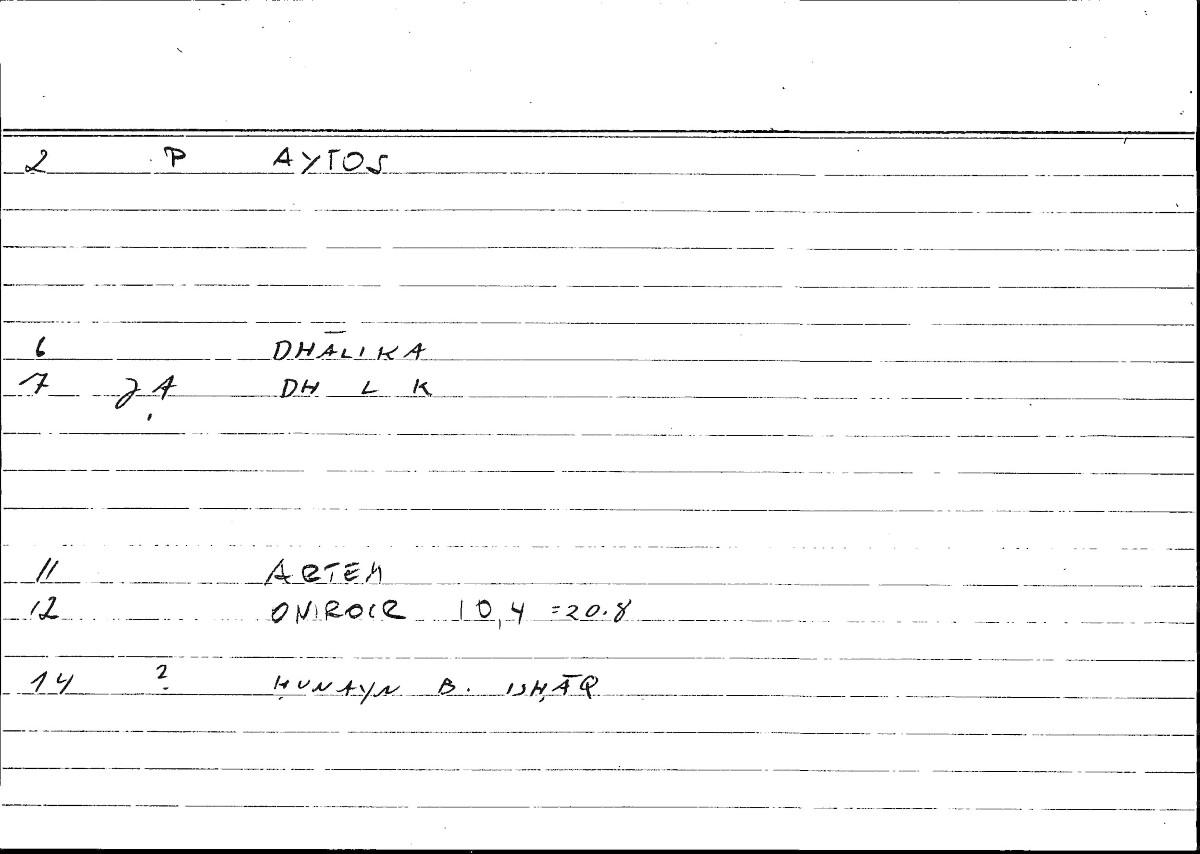 2 P AYTOS
6 DHĀLIKA
7 JA DH L K
11 ARTEM
12 ONIROCR 10,4 =20.8
14 ? ḤUNAYN B. ISḤĀQ